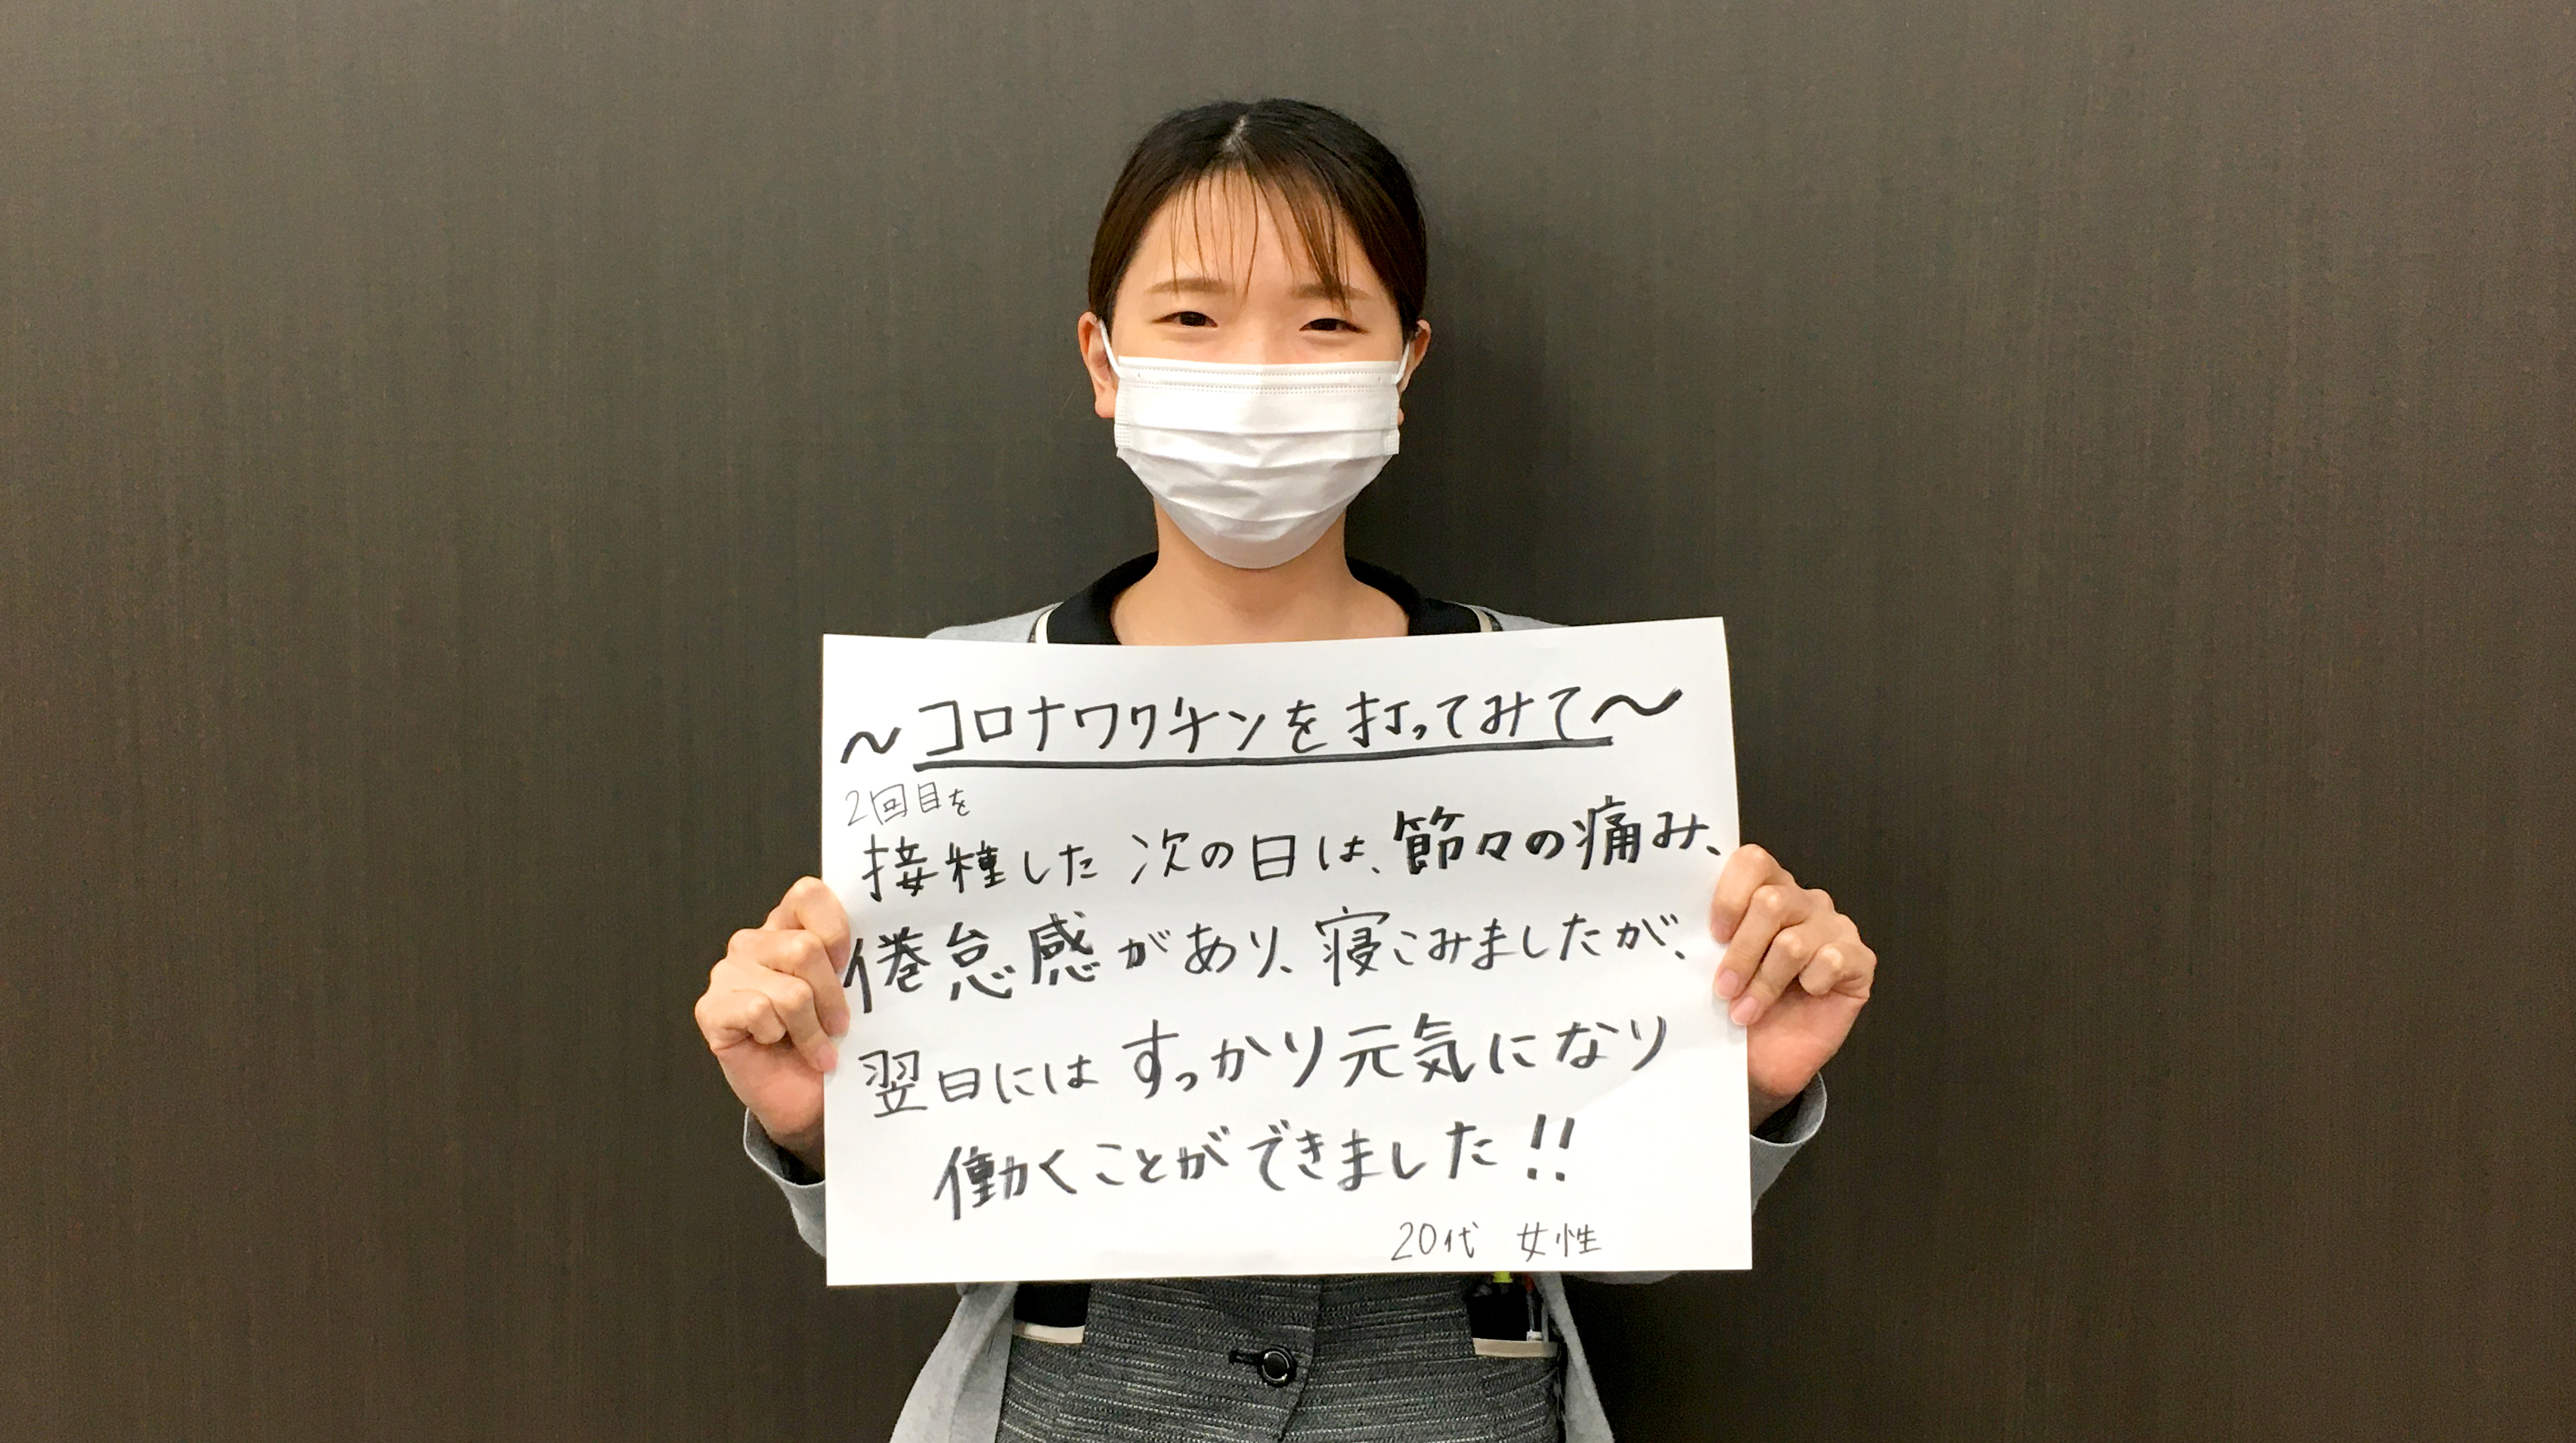 ～コロナワクチンを打ってみて～
2回目を
接種した次の日は、節々の痛み、
倦怠感があり、寝こみましたが、
翌日にはすっかり元気になり
働くことができました!!
20代 女性